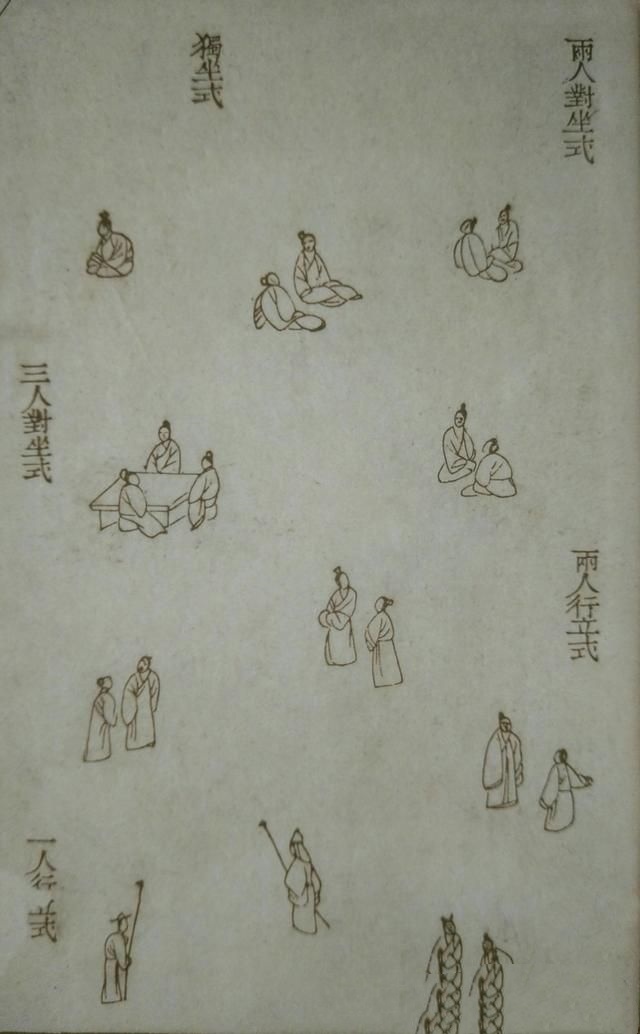 兩人對坐式
兩人行立式
獨坐式
三人對坐式
一人行立式